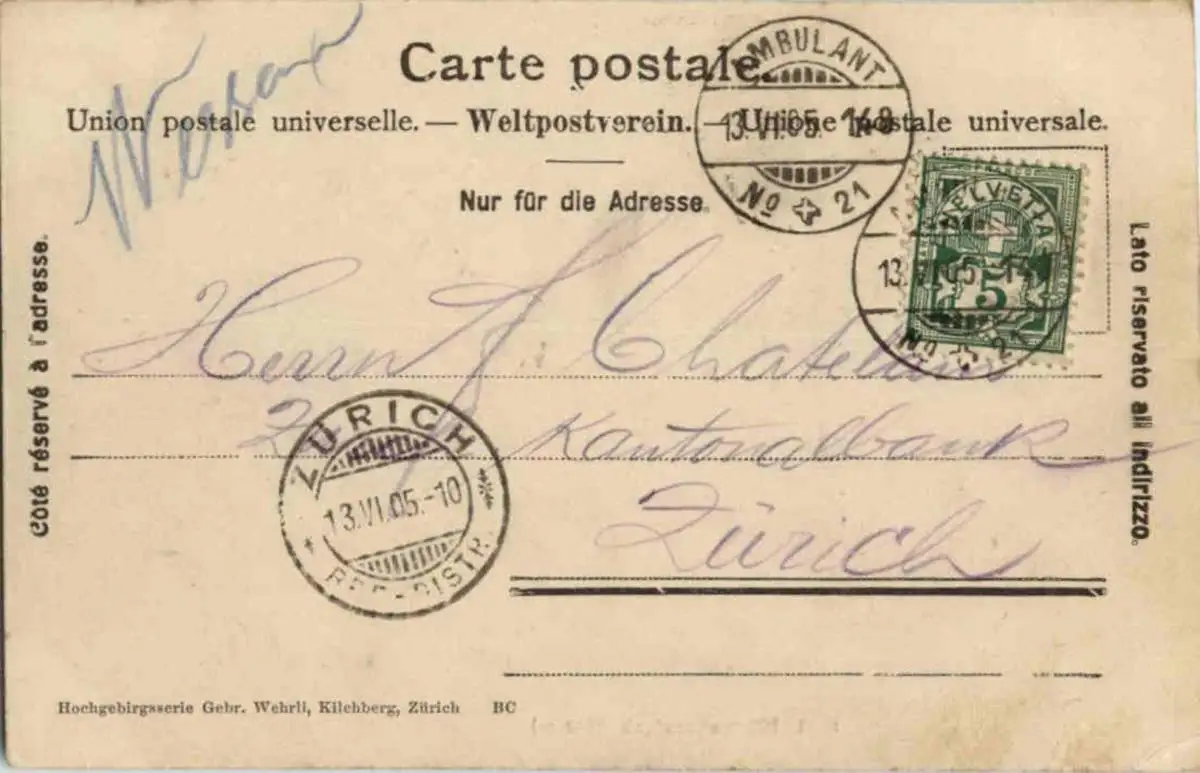 Carte postale.
Union postale universelle. — Weltpostverein. — Unione postale universale.
Nur für die Adresse.
Côté réservé à l'adresse.
Lato riservato all indirizzo.
AMBULANT
13.VI.05. 148
No 21
HELVETIA
5
13.VI.05 - 148
No 21
Herrn Chatelain
Kantonalbank
Zürich
ZÜRICH
13.VI.05.-10
REC-DISTR.
Hochgebirgsserie Gebr. Wehrli, Kilchberg, Zürich BC